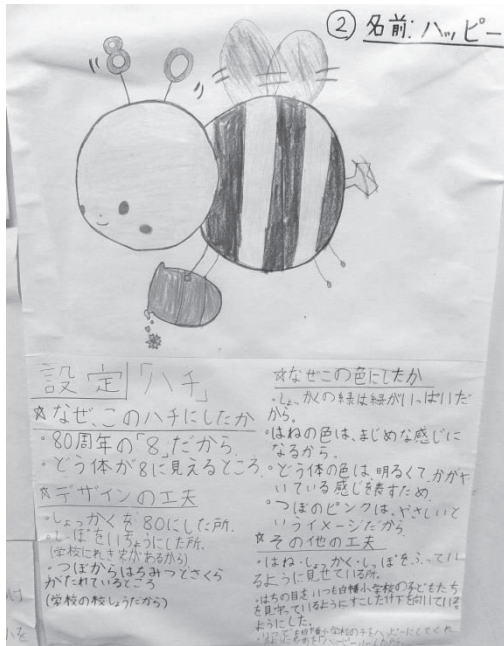 ② 名前:ハッピー
80
設定「ハチ」
☆なぜ、このハチにしたか
・80周年の「8」だから。
・どう体が8に見えるところ。
☆デザインの工夫
・しょっかくを80にした所。
・しっぽをいちょうにした所。
(学校にれき史があるから)
・つぼからはちみつとさくら
がたれているところ
(学校の校しょうだから)
☆なぜこの色にしたか
・しょっかくの緑は緑がいっぱいだ
から。
・はねの色は、まじめな感じに
なるから。
・どう体の色は、明るくて、かがや
いている感じを表すため
・つぼのピンクは、やさしいと
いうイメージだから。
☆その他の工夫
・はね・しょっかく・しっぽをふってい
るように見せている所。
・はちの目をいつも白幡小学校の子どもたち
を見守っているようにすこしだけ下を向いている
ようにした。